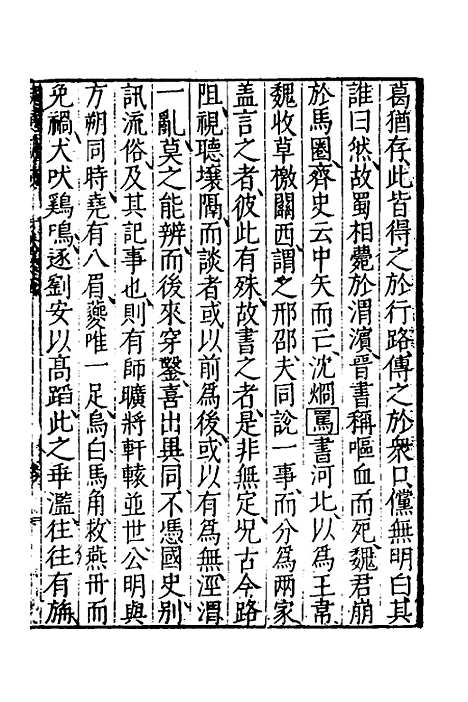 葛猶存此皆得之於行路傳之於衆口儻無明白其
誰曰然故蜀相薨於渭濱晉書稱嘔血而死魏君崩
於馬圈齊史云中矢而亡沈烱罵書河北以爲王韋
魏收草檄關西謂之邢邵夫同說一事而分爲兩家
盖言之者彼此有殊故書之者是非無定况古今路
阻視聽壤隔而談者或以前爲後或以有爲無涇渭
一亂莫之能辨而後來穿鑿喜出異同不憑國史別
訊流俗及其記事也則有師曠將軒轅並世公明與
方朔同時堯有八眉夔唯一足烏白馬角救燕丹而
免禍犬吠鷄鳴逐劉安以高蹈此之乖濫往往有旃